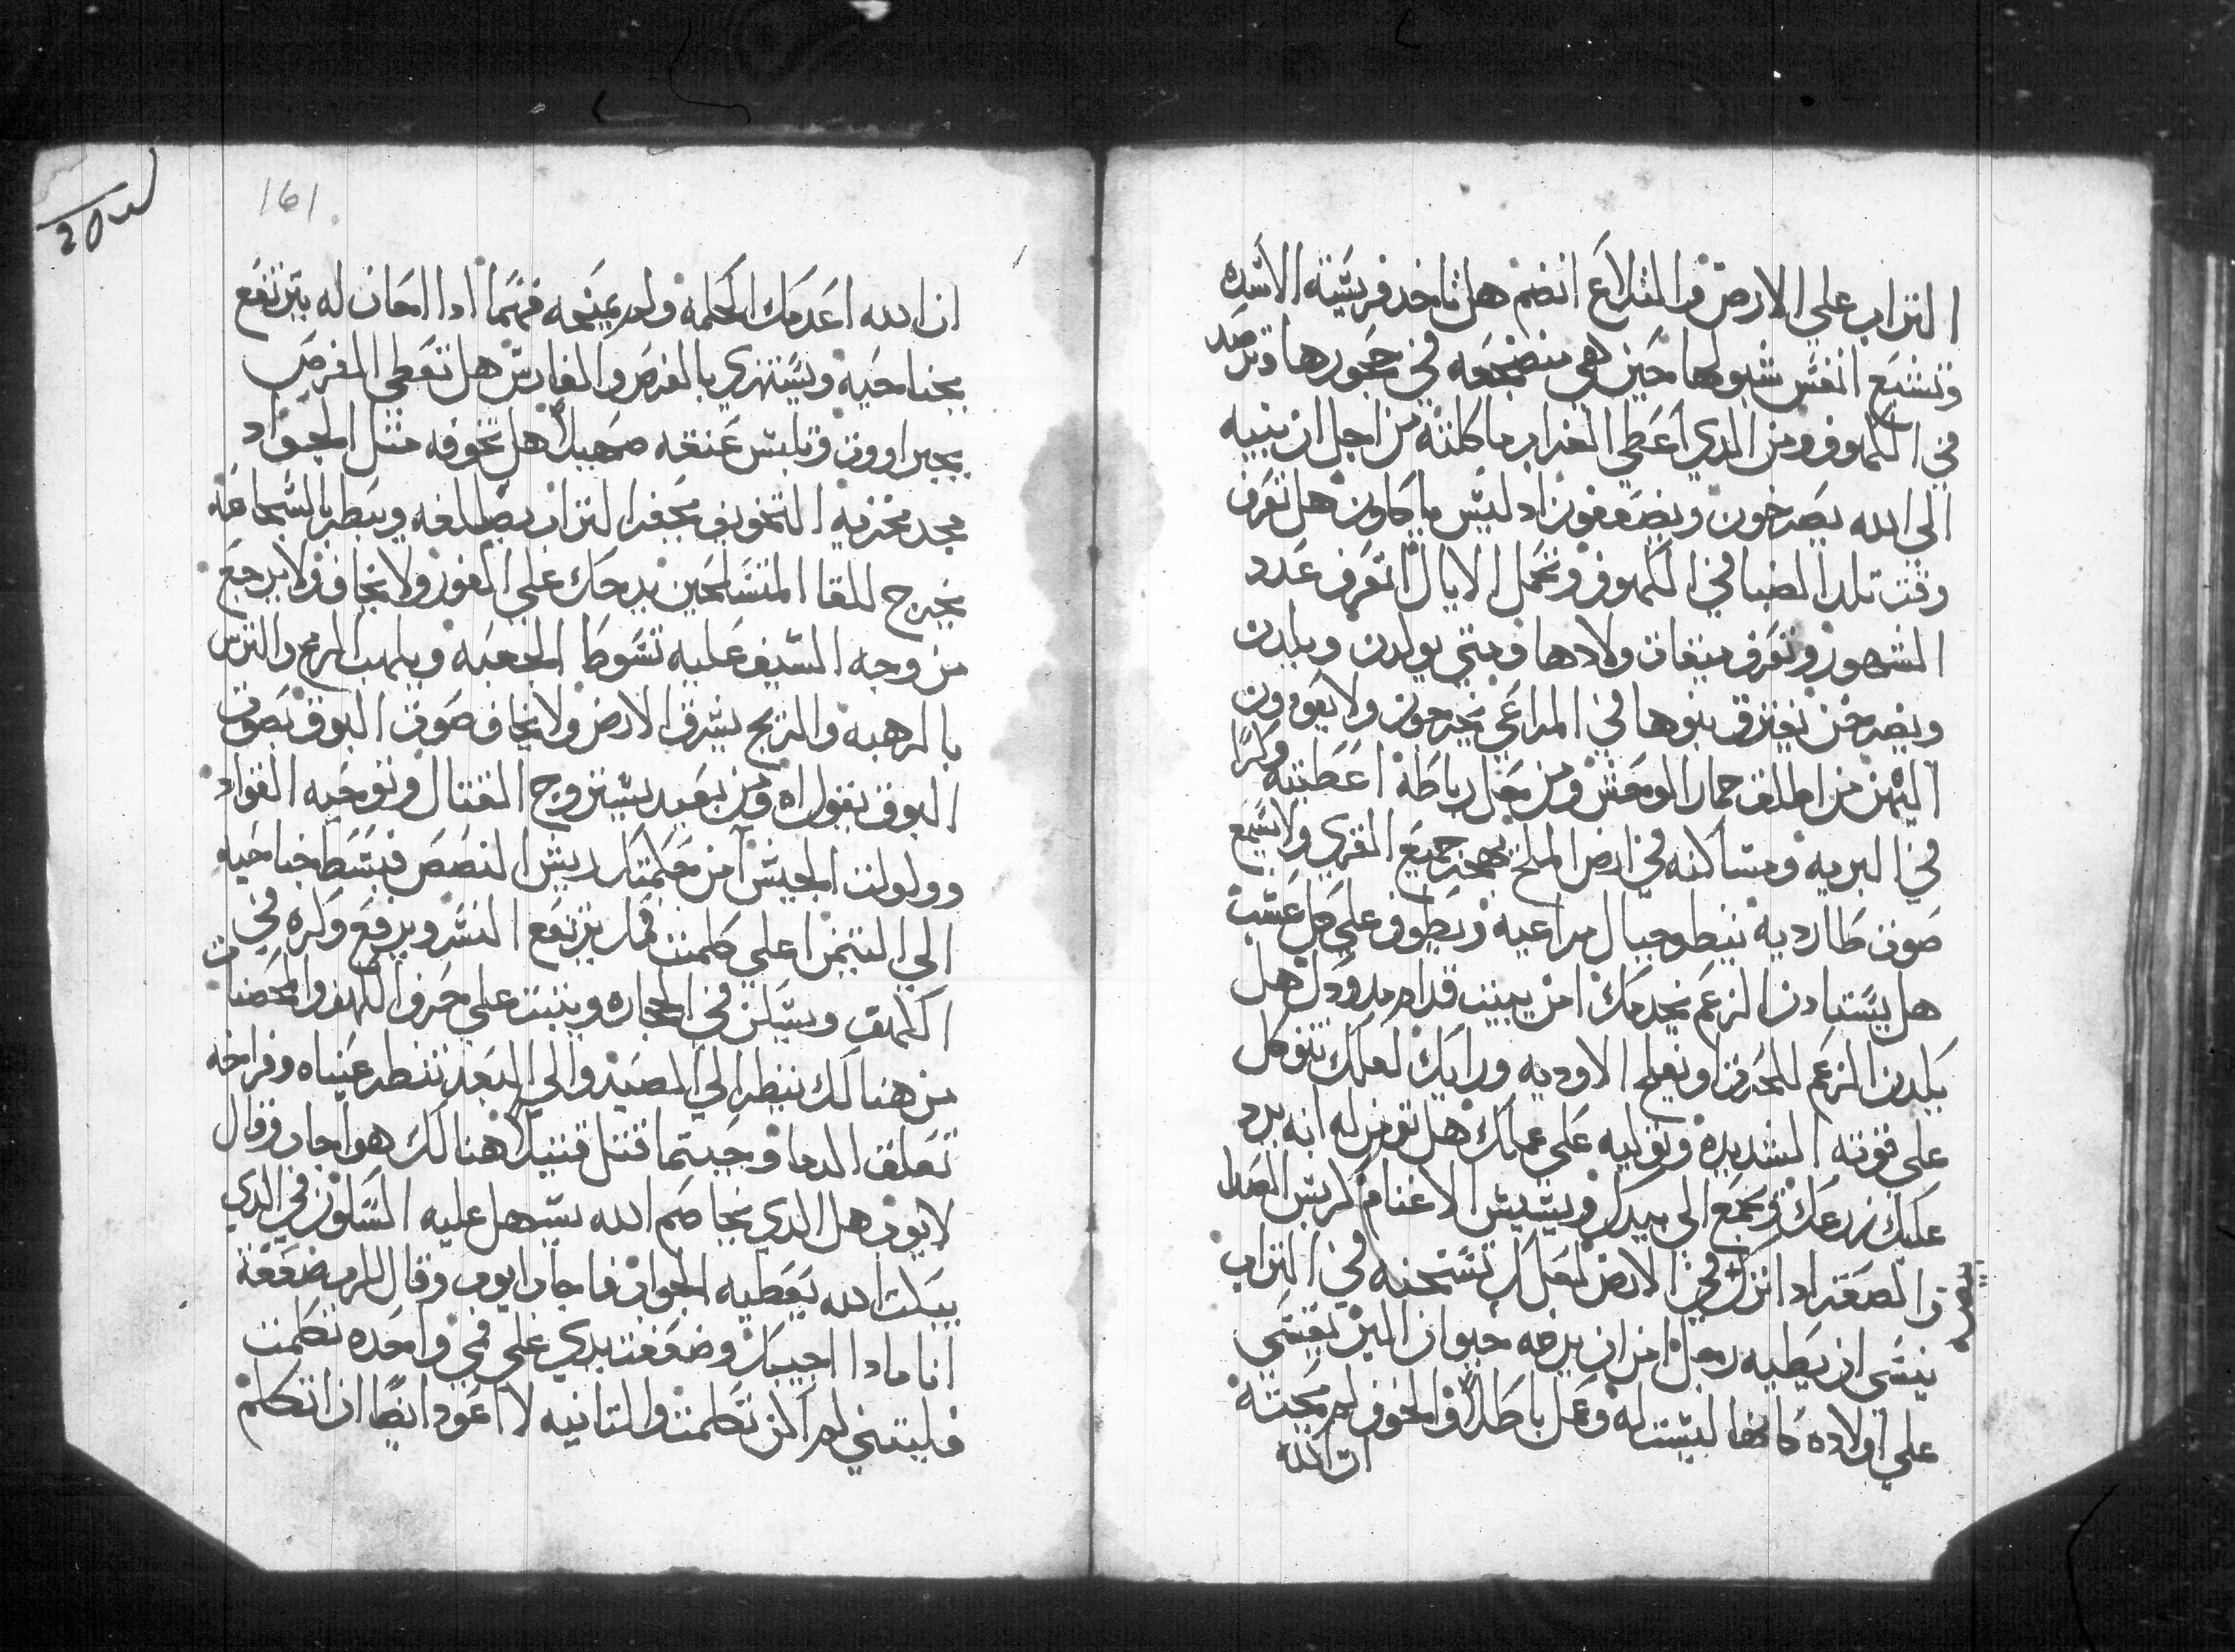 التراب علي الارض والمتلاع انضم هل تاخد فريسة الاسده
وتشبع انفس شبولها حين هي منضجعه في جحورها وترصد
في الكهوف ومن الدي اعطي الغراب ماكلته من اجل ان بنيه
الي الله يصرخون ويضعفون اد ليس ياكلون هل تعرف
وقت تلد الضبا في الكهوف وتحمل الايال اتعرف عدد
الشهور وتعرف ميقات ولادها ومتي يولدن ويلدن
ويصرخن يفترق بنوها في المراعي يخرجون ولا يعودون
اليهن من اطلق حمار الوحش ومن محل رباطة اعطيته وكرًا
في البريه ومساكنه في ارض الملح يهجر جميع القري ولا يسمع
صوت طارديه ينيطو جبال مراعيه ويطوف علي كل عشب
هل يستادن الزعم يخدمك امن يبيت قدام مدودك هل
يلدن الزعم للحرث او يفلح الاوديه وراك لعلك تتوكل
علي قوته الشديده وتوليه علي عملك هل تومن له انه يرد
عليك زرعك ويجمع الي بيدرك ويشيش الاغنام كريش العدا
والصقر اد اترك في الارض لعلك تسخنه في التراب
ينسي ان يطيه رجل امن ان يرضه حيوان البر يقسي
علي اولاده كانها ليست له وعمل باطلاً والخوف لم يجته
ان الله
161
ان الله اعدمك الحكمه ولم يمنحه فهمًا ادا امحان له يترتفع
بجناحيه ويستهزي بالفرس والفارس هل تعطي الفرس
بجبراووت وتلبس عنقه صهيلاً هل تخوفه متل الجواد
مجد منخريه التخويف يحفر التراب يصطلغه ويبطر بالشجاعه
يخرج للقا المتسلحين يدحك علي الفزع ولا يخاف ولا يرجع
من وجه السيف عليه تسوط الجعبه ويلهب الرمح والترس
بالرهبه والزنج يشرق الارض ولا يخاف صوت البوق بصوت
البوق يقول اه ومن بعيد يشتروح القتال وتوحيه القواد
وولولت الجيش امن حكمتك ريش النصص فبسط جناحيه
الي التيمن اعلي كلمتك يرتفع النسر ويرفع وكره في
الكهف ويسكن في الحجاره ويبيت علي حرف الكهف والحصنات
من هنالك ينظر الي الصيد والي البعد تنظر عيناه وفراخه
تعلق الدما وحيتما قتل قتيلاً هنالك هو اجاب وقال
لايوب هل الدي يخاصم الله يسهل عليه السكون في الدي
يبكت الله يعطيه الجواب فاجاب ايوب وقال للرب ضعفة
انا مادا اجيبك وضعفت يدي علي فمي واحده تكلمت
فليتني لم اكن تكلمت والتانيه لا اعود ايضًا ان اتكلم